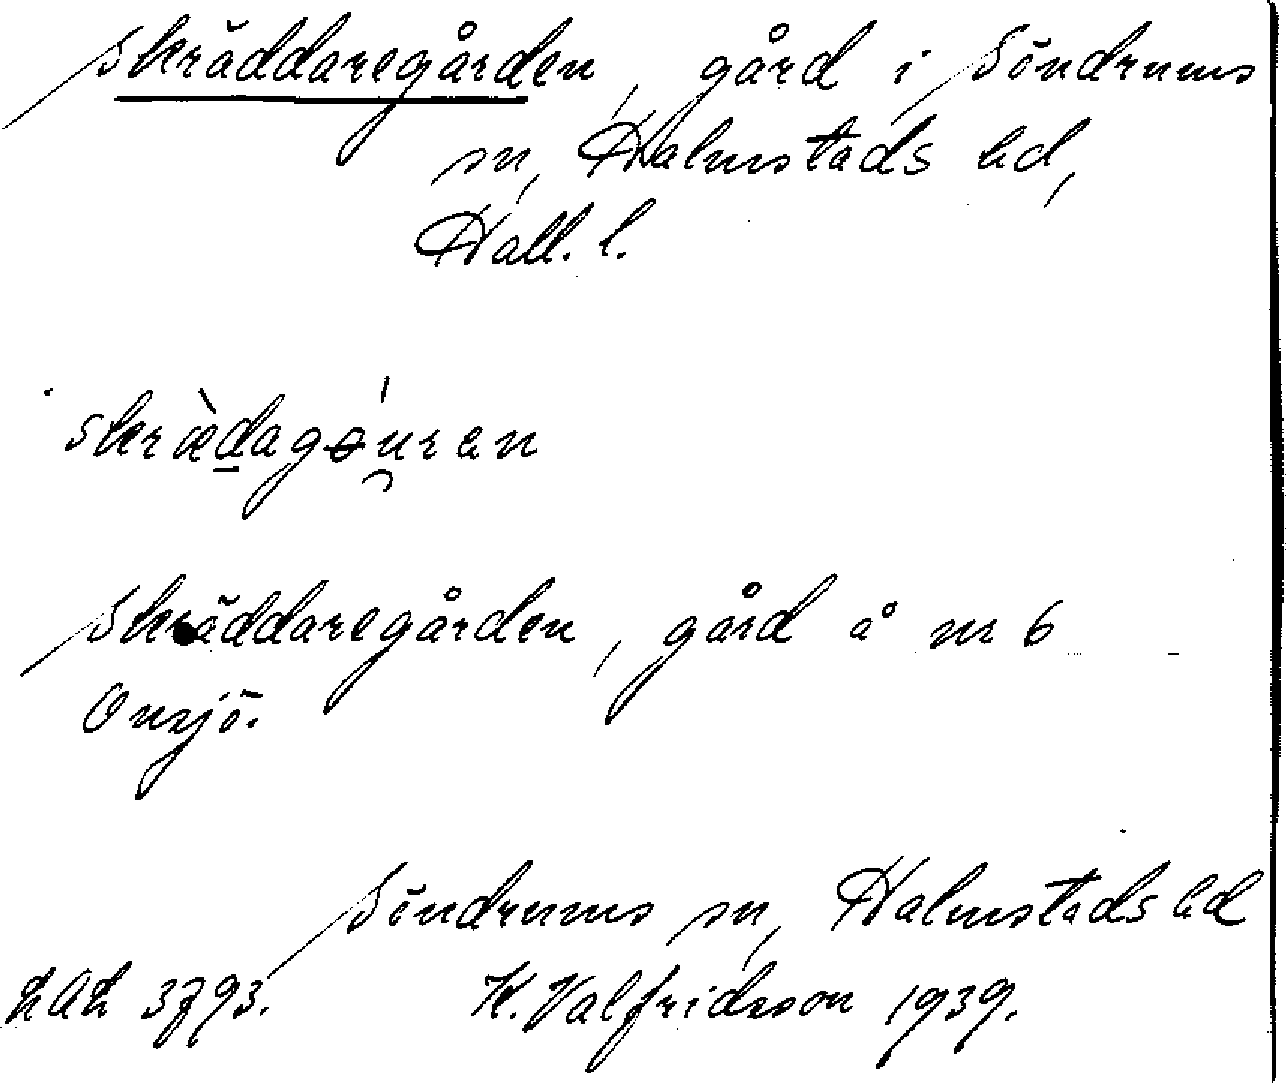 Skräddaregården, gård i Söndrums
sn, Halmstads hd,
Hall. l.
skrædagɵ́u̯ran
Skräddaregården, gård å nr 6
Onsjö.
Söndrums sn, Halmstads hd
LAL 3793. K. Valfridsson 1939.